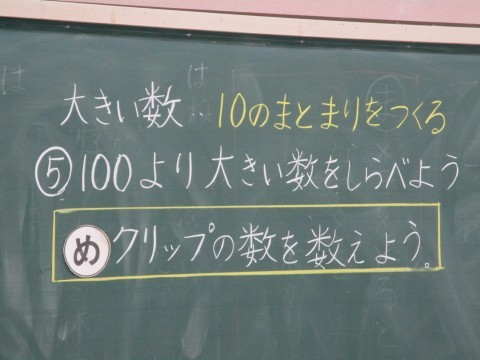 大きい数 10のまとまりをつくる
⑤100より大きい数をしらべよう
め クリップの数を数えよう。